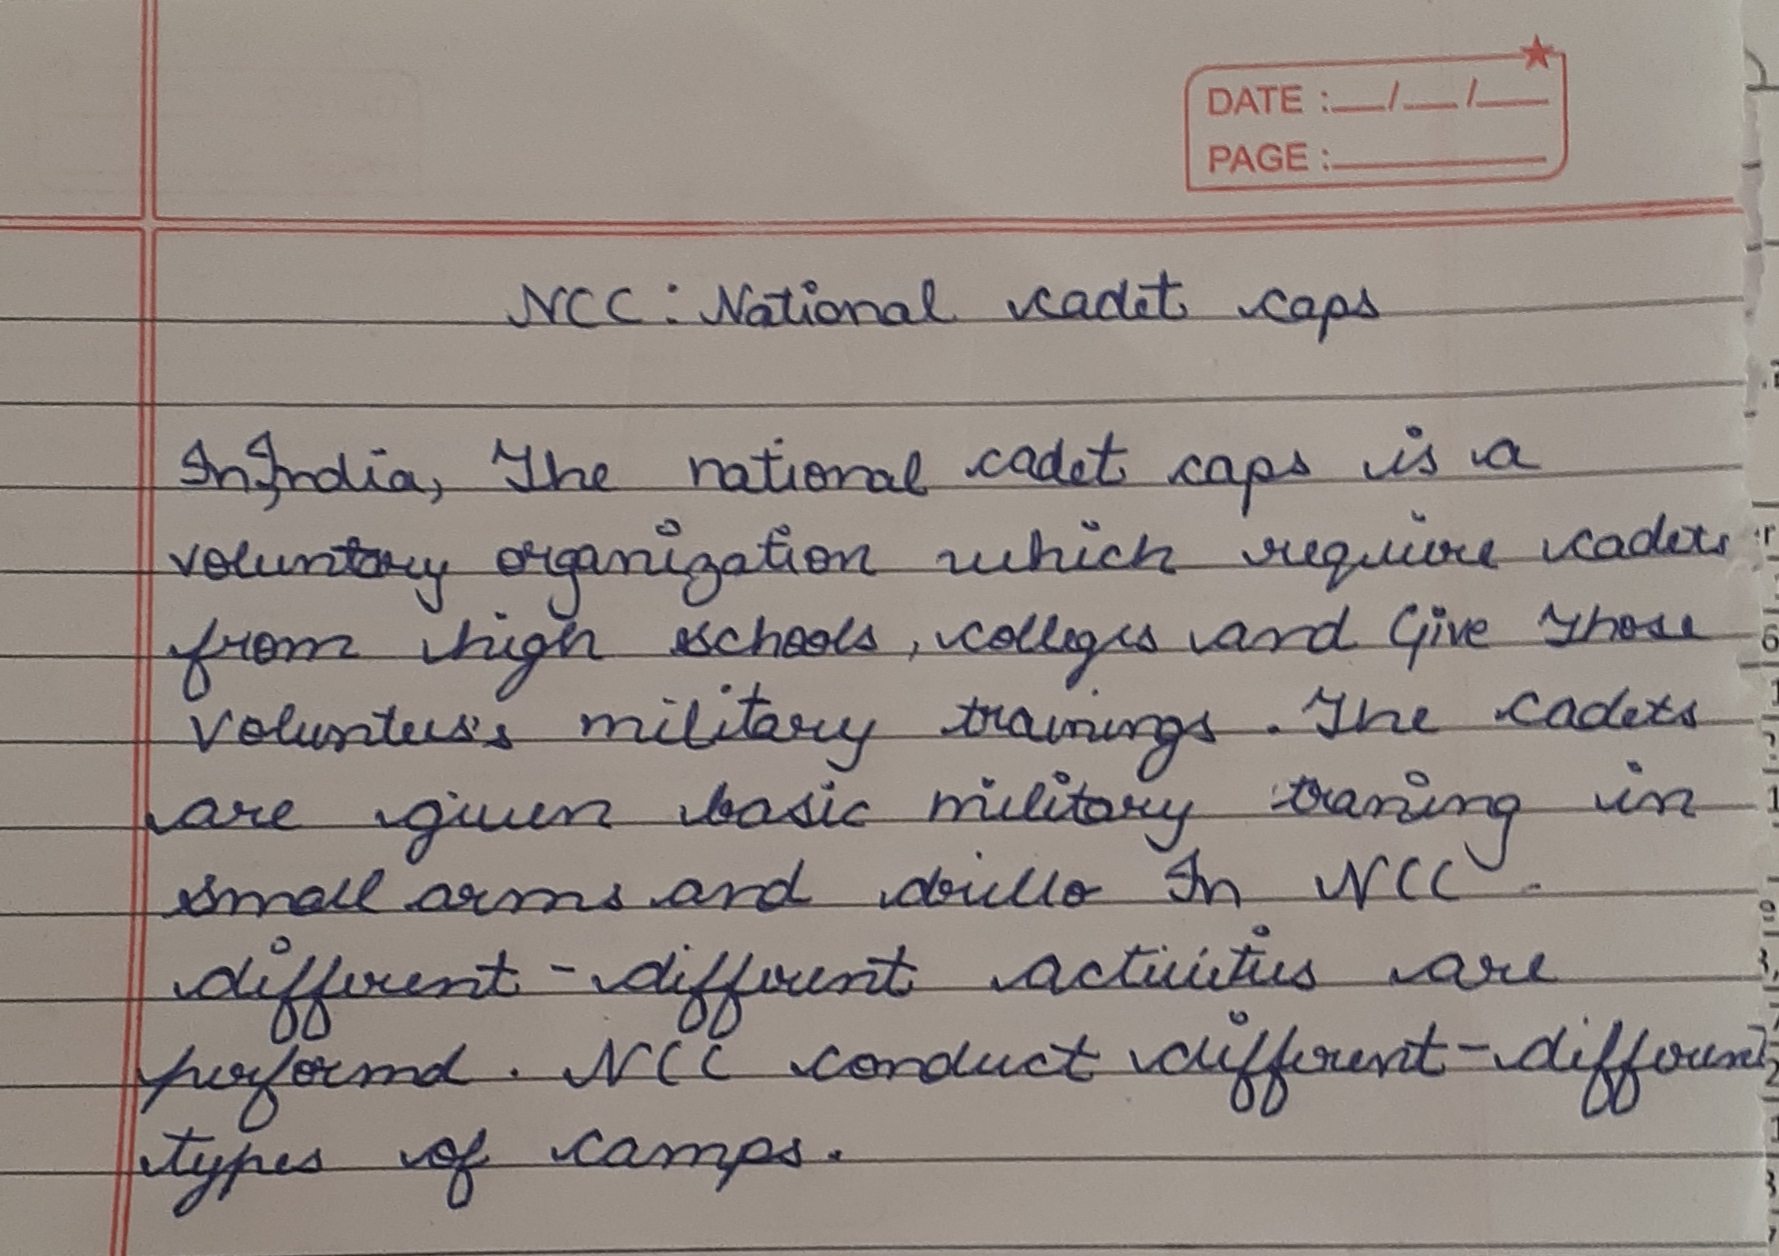 DATE :__/__/__
PAGE :______
NCC : National cadet caps
In India, The national cadet caps is a
voluntary organization which require cadets
from high schools, colleges and Give those
Volunteer's military trainings. The cadets
are given basic military traning in
small arms and drills In NCC.
different - different activities are
performd. NCC conduct different - different
types of camps.